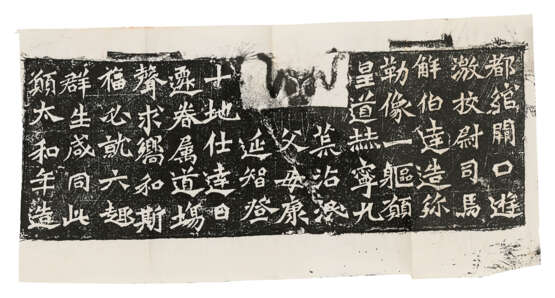 都綰關口遊
激挍尉司馬
解伯達造弥
勒像一軀願
皇道赫寧九
荒沾澤
父母康
延智登
十地仕達日
遷眷属道場
聲求嚮和斯
福必就六趣
群生咸同此
願太和年造